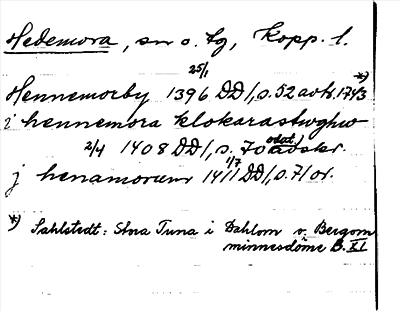 Hedemora, sn o. tg, Kopp. l.
25/1
Hennemorby 1396 DD 1, s. 52 avtr. 1743 *)
i hennemora klokarastwghw
2/4 1408 DD 1, s. 70 odat. avskr.
j henamorum 1/7 1411 DD 1, s. 71 or.
*) Sahlstedt: Stora Tuna i Dahlom o. Bergom
minnesdöme B. XI